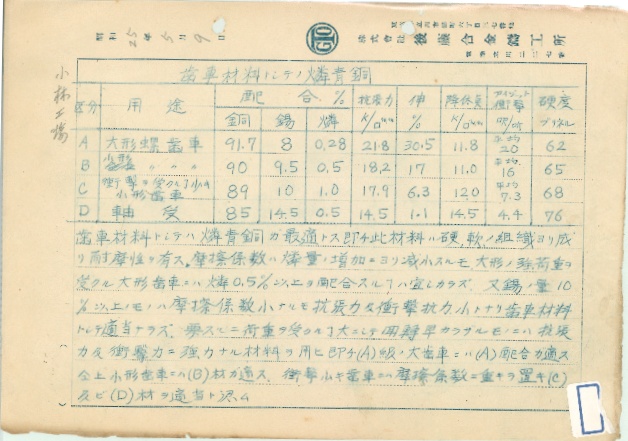 昭和25年5月9日
株式会社 後藤合金鑄工所
小林工場
歯車材料トシテノ燐青銅
区分 用途 配合% 抗張力 伸 降伏点 衝撃 硬度
銅 錫 燐 K/□mm % K/□mm ブリネル
A 大形螺歯車 91.7 8 0.28 21.8 30.5 11.8 平均20 62
B 小型 〃 〃 〃 90 9.5 0.5 18.2 17 11.0 平均16 65
C 衝撃ヲ受クル小ナル小形歯車 89 10 1.0 17.9 6.3 12.0 平均7.3 68
D 軸受 85 14.5 0.5 14.5 1.1 14.5 4.4 76
歯車材料トシテハ燐青銅ガ最適トス即チ此材料ハ硬軟ノ組織ヨリ成
リ耐摩性ヲ有ス。摩擦係数ハ燐量ノ増加ニヨリ減小スルモ大形ノ強荷重ヲ
受クル大形歯車ニハ燐0.5%以上ノ配合スルハ宜シカラズ 又錫ノ量10
%以上ノモノハ摩擦係数小ナルモ抗張力及衝撃抗力小トナリ歯車材料
トシテ適当ナラズ 要スルニ荷重ヲ受クル大ニシテ ナルモノニハ抗張
力及衝撃力ニ強力ナル材料ヲ用ヒ即チ(A)級ノ大歯車ニハ(A)配合ガ適ス
仝上小形歯車ニハ(B)材ガ適ス 衝撃小キ歯車ニハ摩擦係数ニ重キヲ置キ(C)
及ビ(D)材ヲ適当ト認ム